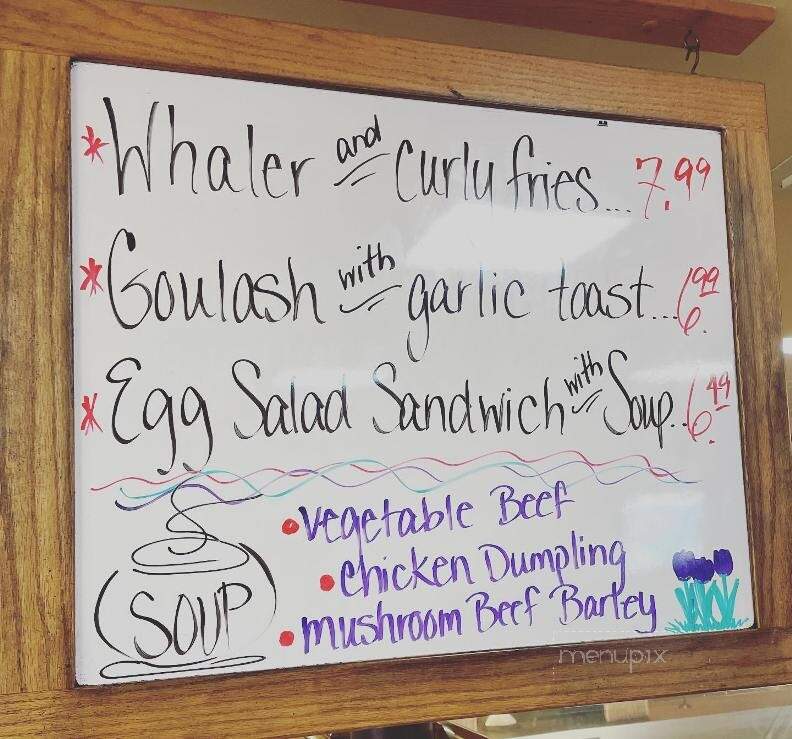 * Whaler and Curly fries... 7.99
* Goulash with garlic toast... 6.99
* Egg Salad Sandwich with Soup.. 6.49
• vegetable Beef
• chicken Dumpling
• mushroom Beef Barley
SOUP
menupix